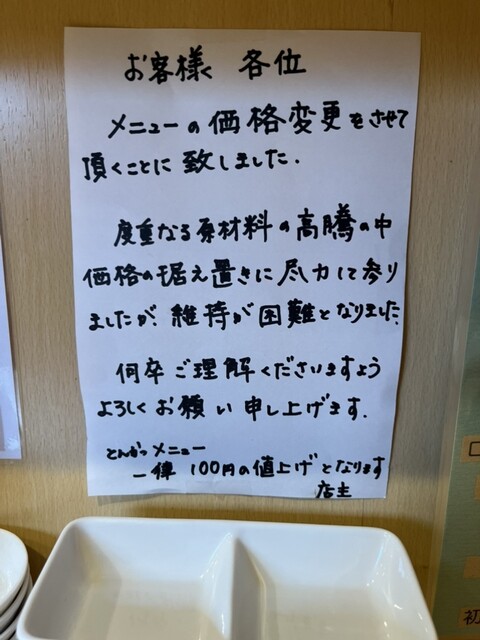 お客様 各位
メニューの価格変更をさせて
頂くことに致しました.
度重なる原材料の高騰の中
価格の据え置きに尽力して参り
ましたが、維持が困難となりました、
何卒ご理解くださいますよう
よろしくお願い申し上げます.
とんかつメニュー
一律 100円の値上げとなります
店主
初